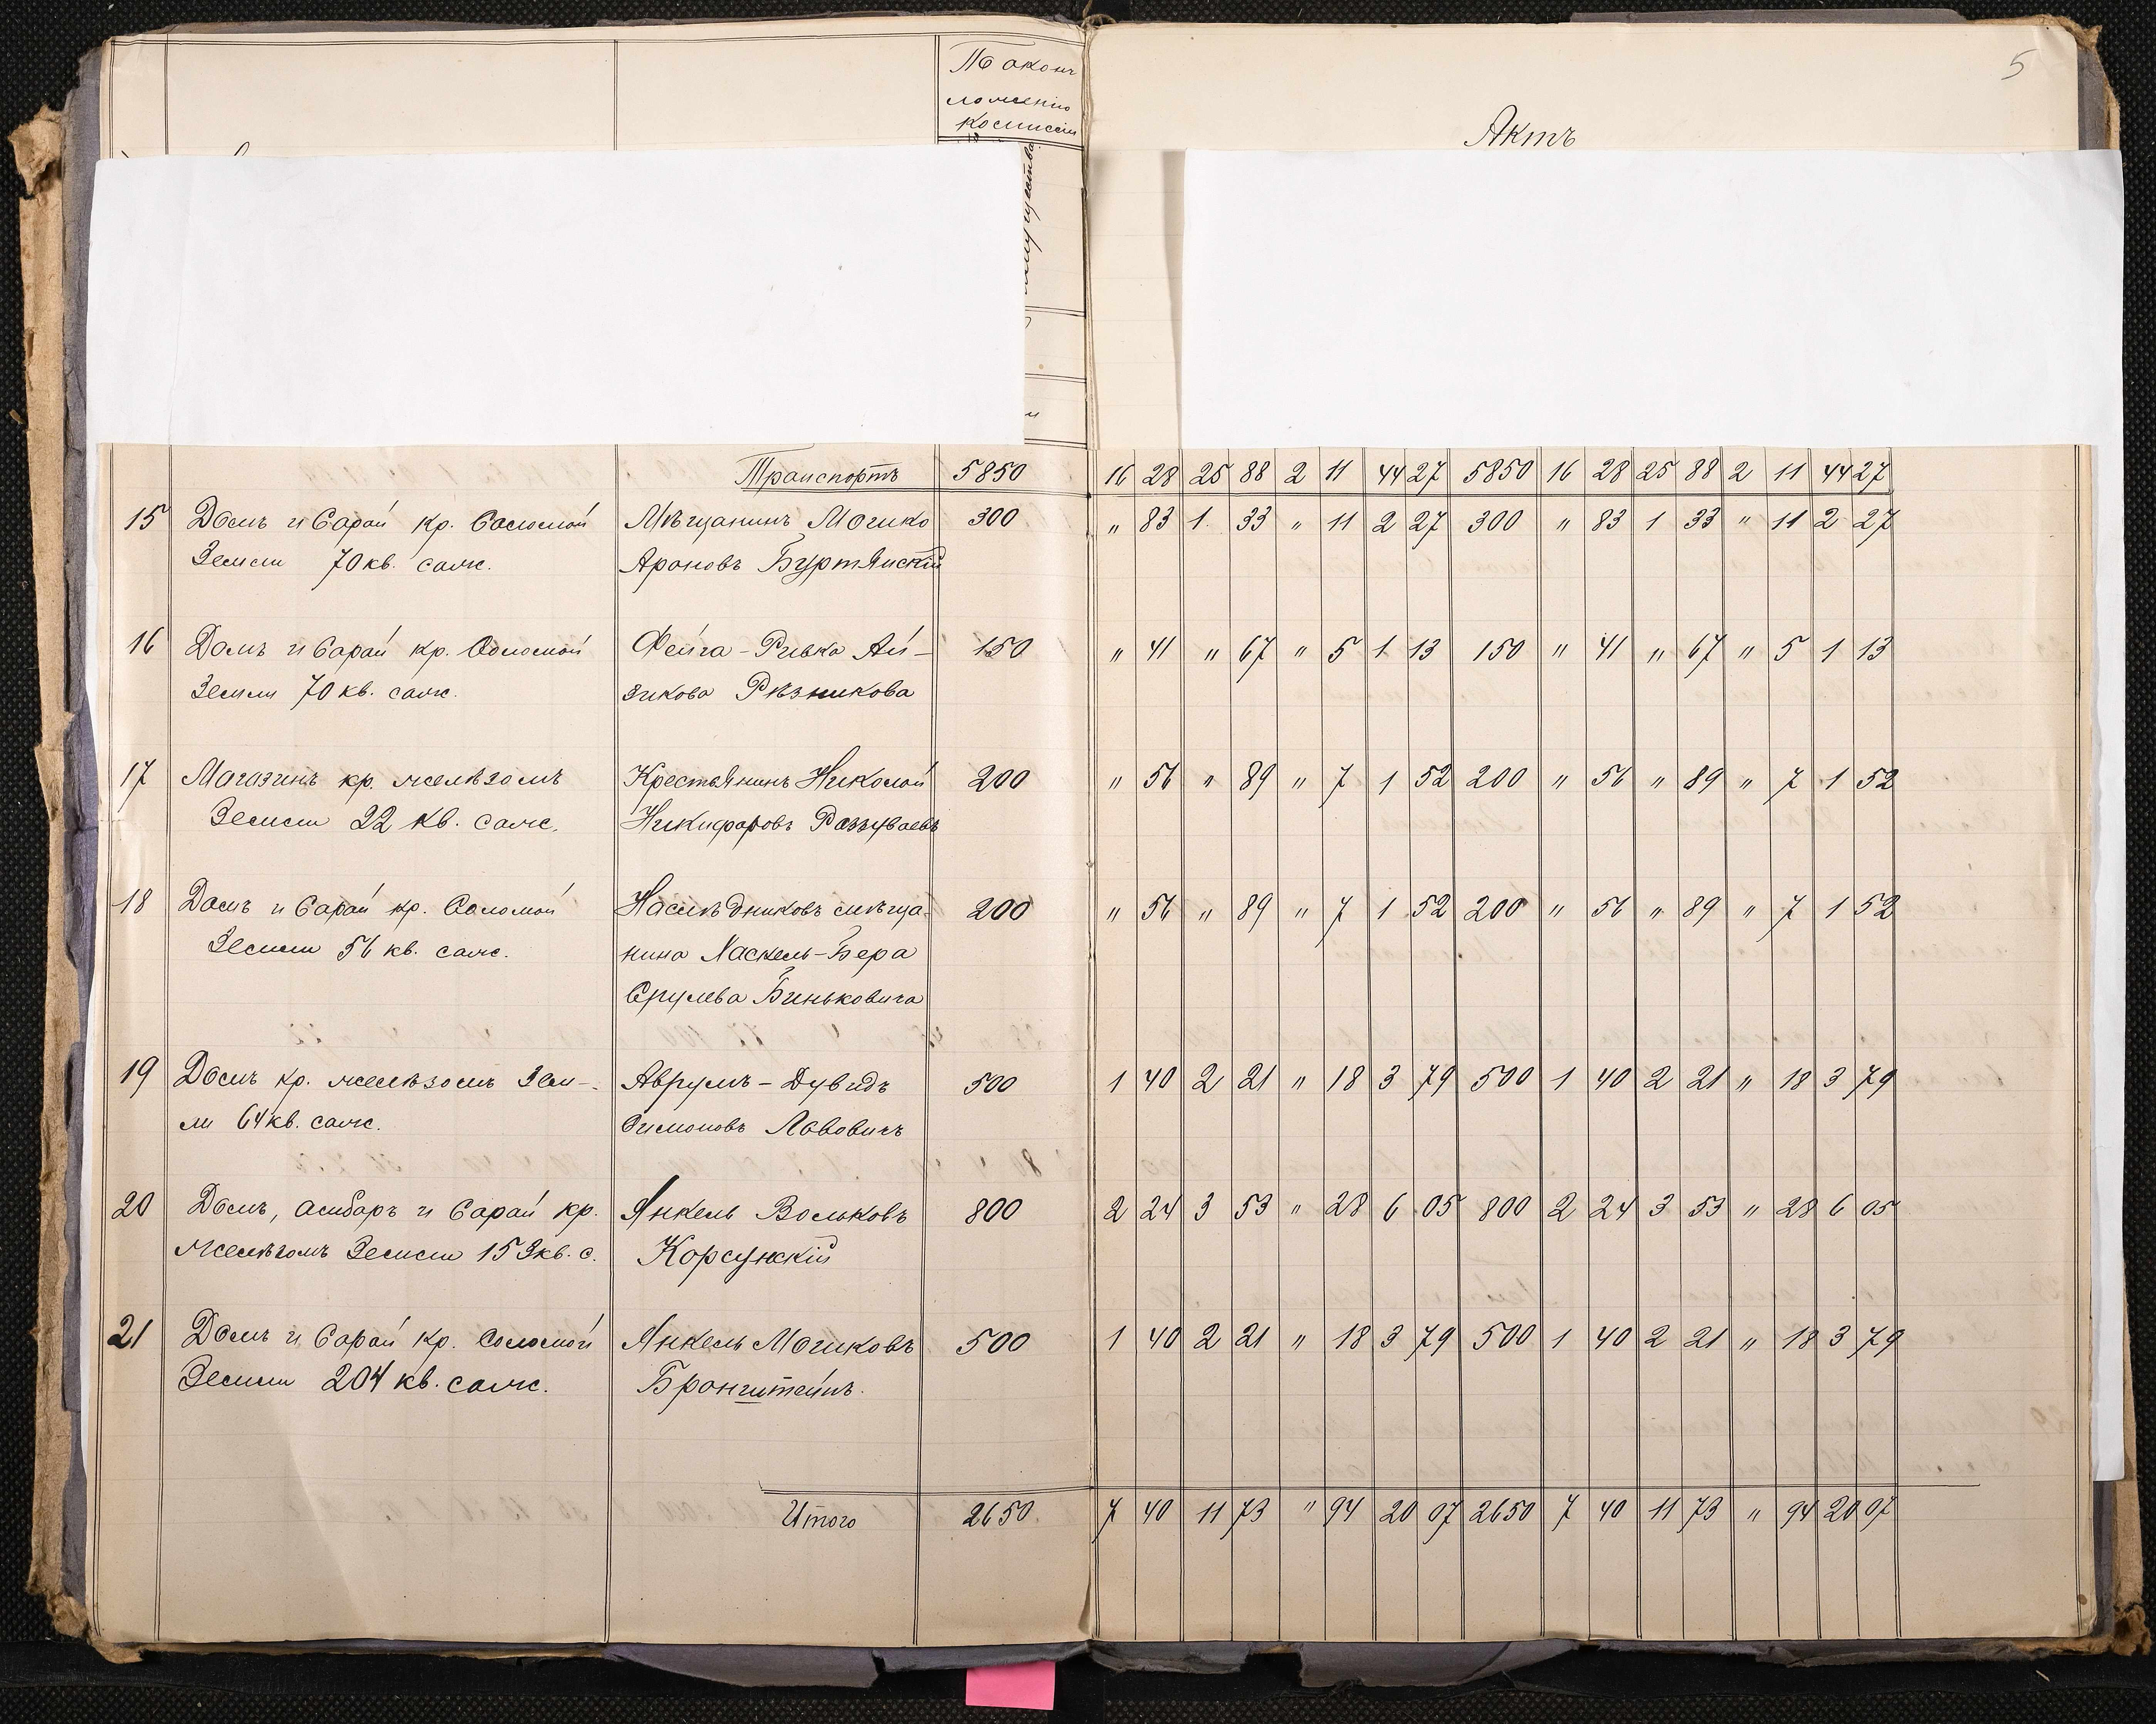 ложенію
Комиссіи
имущества
5
Актъ
Транспортъ 5850 16 28 25 88 2 11 44 27 5850 16 28 25 88 2 11 44 27
15 Домъ и Сарай кр. Соломой Мѣщанинъ Мошко 300 " 83 1 33 " 11 2 27 300 " 83 1 33 " 11 2 27
Земли 70 кв. саж. Ароновъ Буртянскій
16 Домъ и Сарай кр. Соломой Фейга-Ривка Ай- 150 " 41 " 67 " 5 1 13 150 " 41 " 67 " 5 1 13
Земли 70 кв. саж. зикова Рѣзникова
17 Магазинъ кр. желѣзомъ Крестьянинъ Николай 200 " 56 " 89 " 7 1 52 200 " 56 " 89 " 7 1 52
Земли 22 кв. саж. Никифоровъ Разуваевъ
18 Домъ и Сарай кр. Соломой Наслѣдниковъ мѣща- 200 " 56 " 89 " 7 1 52 200 " 56 " 89 " 7 1 52
Земли 56 кв. саж. нина Хаскель-Бера
Срулева Биньковича
19 Домъ кр. желѣзомъ Зем- Аврумъ-Дувидъ 500 1 40 2 21 " 18 3 79 500 1 40 2 21 " 18 3 79
ли 64 кв. саж. Симоновъ Львовичъ
20 Домъ, амбаръ и Сарай кр. Янкель Вольковъ 800 2 24 3 53 " 28 6 05 800 2 24 3 53 " 28 6 05
желѣзомъ Земли 153 кв. с. Корсунскій
21 Домъ и Сарай кр. Соломой Янкель Мошковъ 500 1 40 2 21 " 18 3 79 500 1 40 2 21 " 18 3 79
Земли 204 кв. саж. Бронштейнъ.
Итого 2650 7 40 11 73 " 94 20 07 2650 7 40 11 73 " 94 20 07